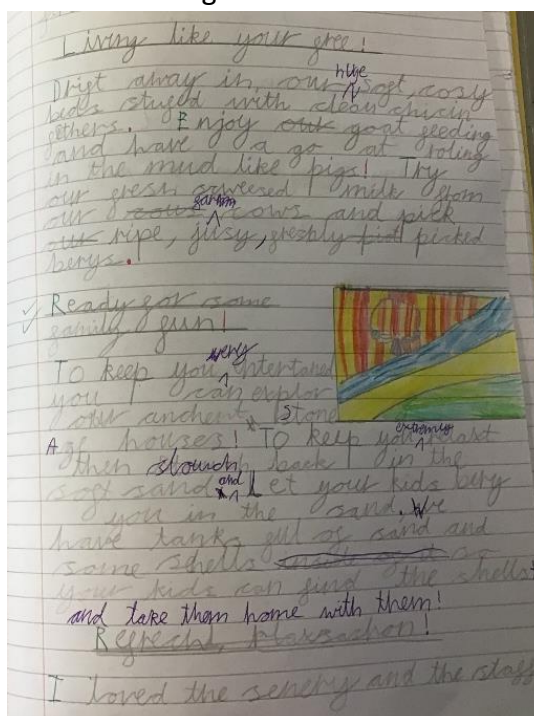 Living like your free!
Drift away in our huge soft, cosy
beds stufed with clean chicin
fethers. Enjoy our goat feeding
and have a go at roling
in the mud like pigs! Try
our fresh sqweesed milk from
our cows farm cows and pick
our ripe, jusy, freshly picked
berys.
Ready for some
family fun!
To keep you very entertaned
you can explor
our anchent Stone
Age houses! To keep you extremely
then slouch back in the
soft sand and Let your kids bery
you in the sand. We
have tanks full of sand and
some shells so
your kids can find the shells
and take them home with them!
I loved the senery and the staff